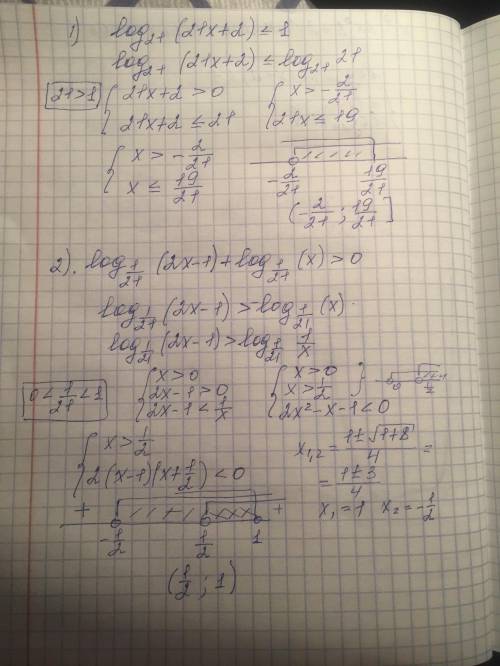 1) log₂₁ (21x+2) ≤ 1
log₂₁ (21x+2) ≤ log₂₁ 21
21>1 { 21x+2 > 0 { x > -2/21
21x+2 ≤ 21 21x ≤ 19
{ x > -2/21
x ≤ 19/21
-2/21 19/21
(-2/21 ; 19/21]
2). log_{1/21} (2x-1) + log_{1/21} (x) > 0
log_{1/21} (2x-1) > log_{1/21} (x)
log_{1/21} (2x-1) > log_{1/21} 1/x
0 < 1/21 < 1 { x > 0 { x > 0
2x-1 > 0 x > 1/2 0 1/2
2x-1 < 1/x 2x²-x-1 < 0
{ x > 1/2
2(x-1)(x+1/2) < 0
x₁,₂ = (1±√(1+8))/4 =
= (1±3)/4
x₁ = 1 x₂ = -1/2
+ +
-1/2 1/2 1
(1/2 ; 1)